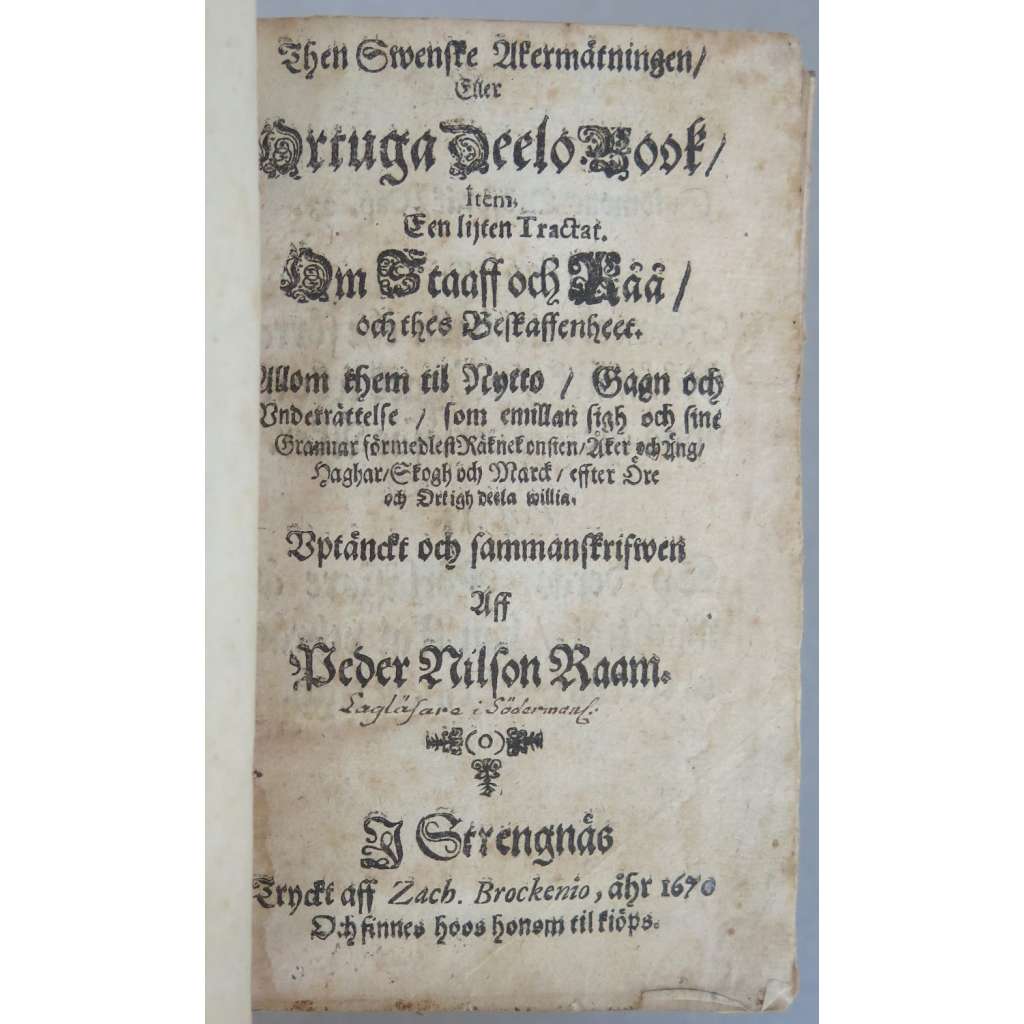 Then Swenske Akermätningen/
Eller
Ortuga Deelo Book/
Item.
Een lijten Tractat.
Om Staaff och Råå/
och thes Beskaffenheet.
Allom them til Nytto / Gagn och
Vnderrättelse / som emillan sigh och sine
Grannar förmedlest Räknekonsten/Åker och Äng/
Haghar/Skogh och Marck/ effter Öre
och Ortigh deela willia.
Vptänckt och sammanskrifwen
Aff
Peder Nilson Raam.
Lagläsare i Södermanl.
(o)
J Strengnäs
Tryckt aff Zach. Brockenio, åhr 1670
Och finnes hoos honom til kiöps.